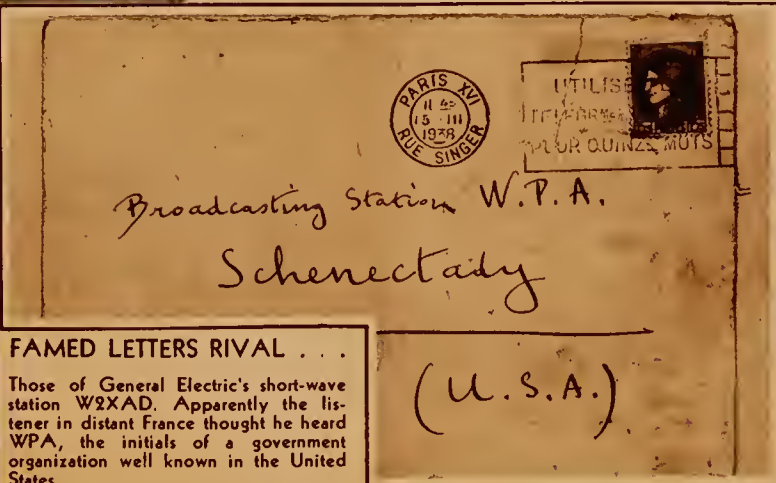 PARIS XVI
11 45
15 III
1938
RUE SINGER
UTILISE
POUR QUINZE MOTS
Broadcasting Station W.P.A.
Schenectady
(U.S.A.)
FAMED LETTERS RIVAL . . .
Those of General Electric's short-wave
station W2XAD. Apparently the lis-
tener in distant France thought he heard
WPA, the initials of a government
organization well known in the United
States.